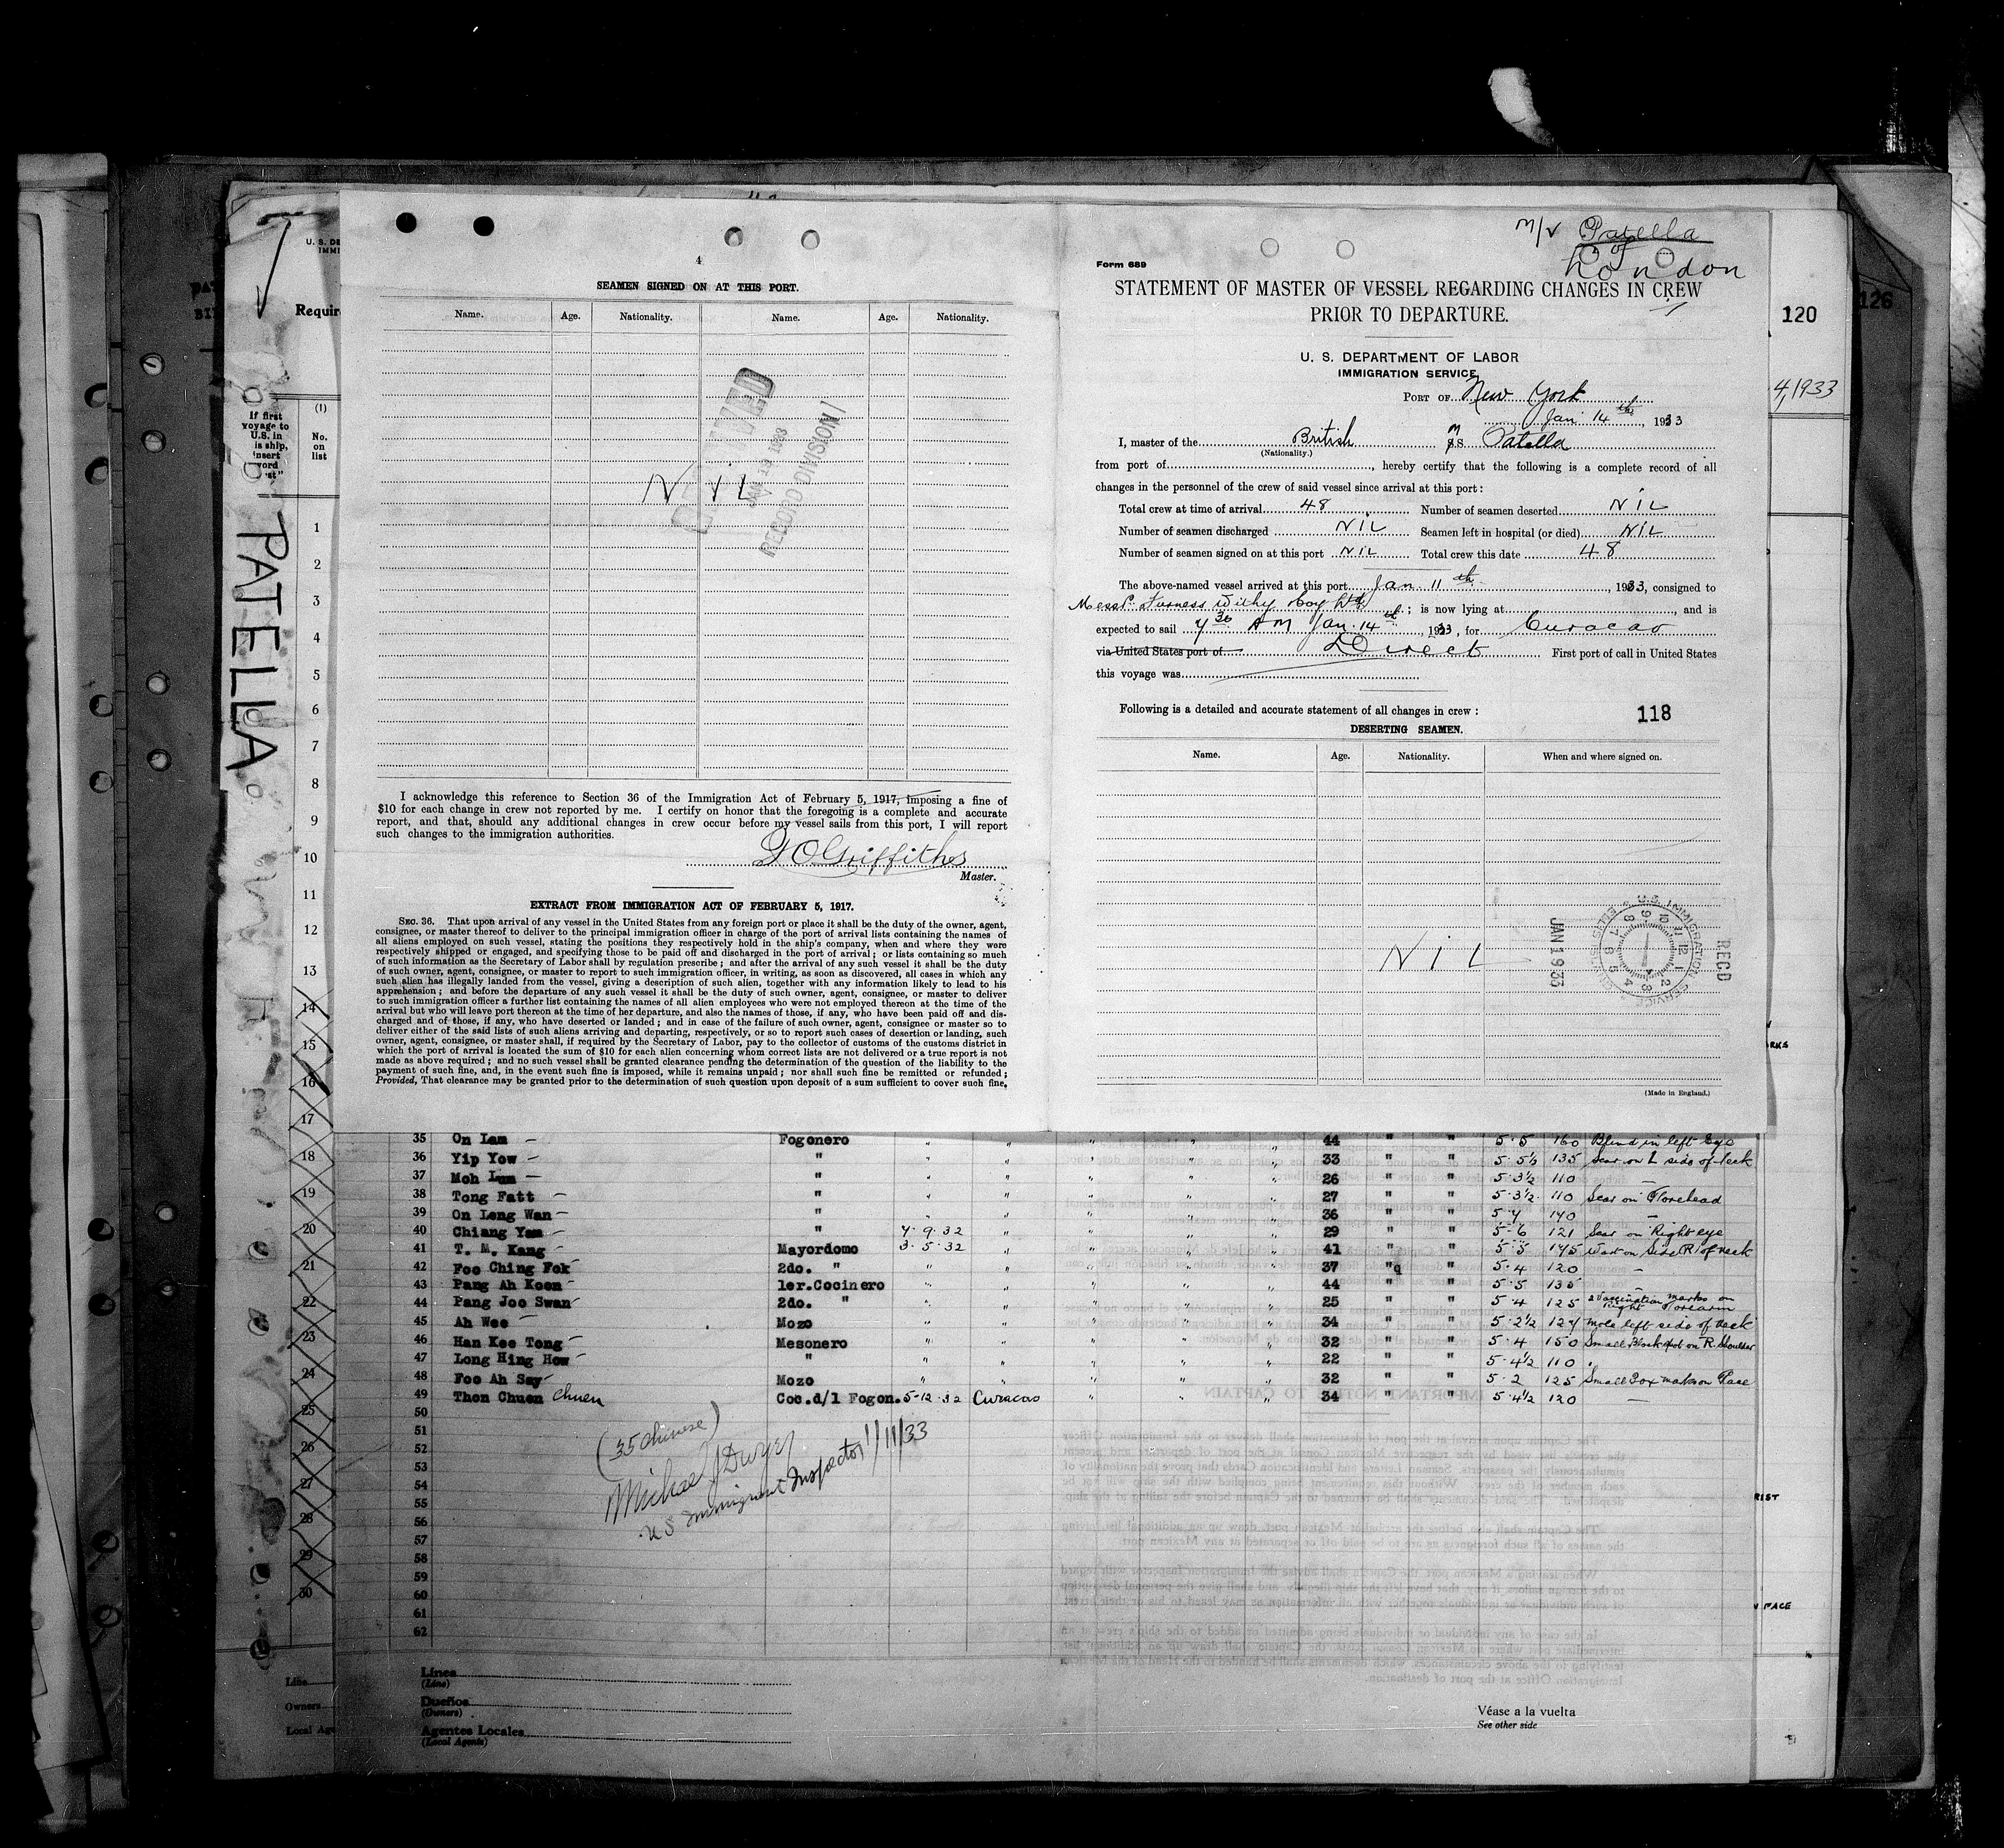 PATELLA
U. S. DE
IMMI
Requir
If first
voyage to
U.S. in
is ship,
insert
word
st."
(1)
No.
on
list
1
2
3
4
5
6
7
8
9
10
11
12
13
14
15
16
17
18
19
20
21
22
23
24
25
26
27
28
29
30
Line
Owners
Local Age
4
SEAMEN SIGNED ON AT THIS PORT.
Name. Age. Nationality. Name. Age. Nationality.
NIL
RECORD DIVISION
I acknowledge this reference to Section 36 of the Immigration Act of February 5, 1917, imposing a fine of
$10 for each change in crew not reported by me. I certify on honor that the foregoing is a complete and accurate
report, and that, should any additional changes in crew occur before my vessel sails from this port, I will report
such changes to the immigration authorities.
Griffiths
Master.
EXTRACT FROM IMMIGRATION ACT OF FEBRUARY 5, 1917.
SEC. 36. That upon arrival of any vessel in the United States from any foreign port or place it shall be the duty of the owner, agent,
consignee, or master thereof to deliver to the principal immigration officer in charge of the port of arrival lists containing the names of
all aliens employed on such vessel, stating the positions they respectively hold in the ship's company, when and where they were
respectively shipped or engaged, and specifying those to be paid off and discharged in the port of arrival; or lists containing so much
of such information as the Secretary of Labor shall by regulation prescribe; and after the arrival of any such vessel it shall be the duty
of such owner, agent, consignee, or master to report to such immigration officer, in writing, as soon as discovered, all cases in which any
such alien has illegally landed from the vessel, giving a description of such alien, together with any information likely to lead to his
apprehension; and before the departure of any such vessel it shall be the duty of such owner, agent, consignee, or master to deliver
to such immigration officer a further list containing the names of all alien employees who were not employed thereon at the time of the
arrival but who will leave port thereon at the time of her departure, and also the names of those, if any, who have been paid off and dis-
charged and of those, if any, who have deserted or landed; and in case of the failure of such owner, agent, consignee or master so to
deliver either of the said lists of such aliens arriving and departing, respectively, or so to report such cases of desertion or landing, such
owner, agent, consignee, or master shall, if required by the Secretary of Labor, pay to the collector of customs of the customs district in
which the port of arrival is located the sum of $10 for each alien concerning whom correct lists are not delivered or a true report is not
made as above required; and no such vessel shall be granted clearance pending the determination of the question of the liability to the
payment of such fine, and, in the event such fine is imposed, while it remains unpaid; nor shall such fine be remitted or refunded;
Provided, That clearance may be granted prior to the determination of such question upon deposit of a sum sufficient to cover such fine.
m/v Patella
of
London
Form 689
STATEMENT OF MASTER OF VESSEL REGARDING CHANGES IN CREW
PRIOR TO DEPARTURE.
U. S. DEPARTMENT OF LABOR
IMMIGRATION SERVICE
PORT OF New York
Jan 14th, 1933
I, master of the British M S Patella
(Nationality.)
from port of, hereby certify that the following is a complete record of all
changes in the personnel of the crew of said vessel since arrival at this port:
Total crew at time of arrival 48 Number of seamen deserted NIL
Number of seamen discharged NIL Seamen left in hospital (or died) NIL
Number of seamen signed on at this port NIL Total crew this date 48
The above-named vessel arrived at this port Jan 11th, 1933, consigned to
Messrs. Furness Withy Coy Ltd; is now lying at, and is
expected to sail 7 30 AM Jan. 14th, 1933, for Curacao
via United States port of Direct First port of call in United States
this voyage was
Following is a detailed and accurate statement of all changes in crew:
118
DESERTING SEAMEN.
Name. Age. Nationality. When and where signed on.
NIL
JAN 19 33
U.S. IMMIGRATION SERVICE
RECD
(Made in England.)
120
126
4, 1933
35 On Lam — Fogonero " " " " " 44 " " 5·5 160 Blind in left Eye
36 Yip Yow — " " " " " " 33 " " 5·5½ 135 Scar on L side of neck
37 Moh Lum — " " " " " " 26 " " 5·3½ 110 —
38 Tong Fatt — " " " " " " 27 " " 5·3½ 110 Scar on Forehead
39 On Leng Wan — " " " " " " 36 " " 5·7 140 —
40 Chiang Yam — " 7·9·32 " " " " 29 " " 5·6 121 Scar on Right eye
41 T. M. Kang — Mayordomo 3·5·32 " " " " 41 " " 5·5 145 Wart on Side R of neck
42 Foo Ching Fok — 2do. " " " " " " 37 "q " 5·4 120 —
43 Pang Ah Koon — 1er.Cocinero " " " " " 44 " " 5·5 135 —
44 Pang Joo Swan — 2do. " " " " " " 25 " " 5·4 125 2 Vaccination marks on Right Forearm
45 Ah Wee — Mozo " " " " " 34 " " 5·2½ 127 Mole left side of neck
46 Han Kee Tong — Mesonero " " " " " 32 " " 5·4 150 Small Black spot on R. Shoulder
47 Long Hing How — " " " " " " 22 " " 5·4½ 110
48 Foo Ah Say — Mozo " " " " " 32 " " 5·2 125 Small Pox marks on Face
49 Thon Chuen Chuen Coc.d/l Fogon. 5·12·32 Curacao " " " 34 " " 5·4½ 120 —
50
51
52
53
54
55
56
57
58
59
60
61
62
(35 Chinese)
Michael J Dwyer
US Immigrant Inspector 1/11/33
Línea
(Line)
Dueños
(Owners)
Agentes Locales
(Local Agents)
Véase a la vuelta
See other side
RKS
RIST
FACE